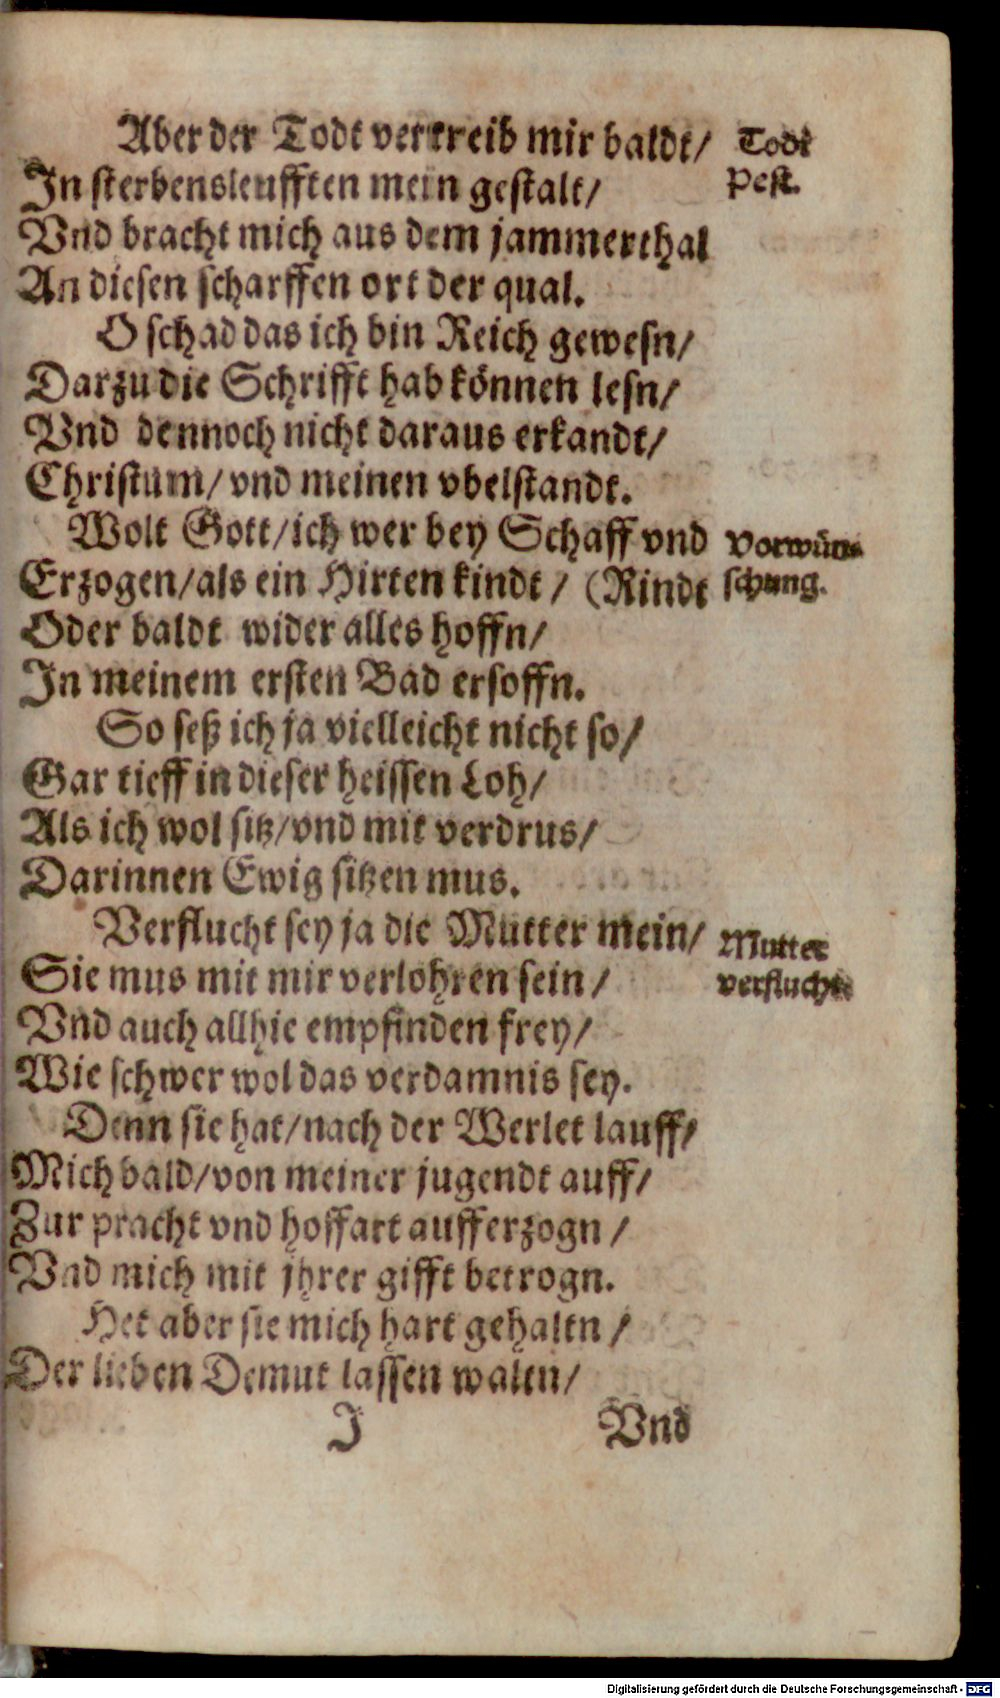 Aber der Todt vertreib mir baldt/
Todt
In sterbensleufften mein gestalt/
Pest.
Vnd bracht mich aus dem jammerthal
An diesen scharffen ort der qual.
O schad das ich bin Reich gewesn/
Darzu die Schrifft hab können lesn/
Vnd dennoch nicht daraus erkandt/
Christum/ vnd meinen vbelstandt.
Wolt Gott/ich wer bey Schaff vnd
Vorwün-
Erzogen/als ein Hirten kindt/ (Rindt
schung.
Oder baldt wider alles hoffn/
In meinem ersten Bad ersoffn.
So seß ich ja vielleicht nicht so/
Gar tieff in dieser heissen Loh/
Als ich wol sitz/vnd mit verdrus/
Darinnen Ewig sitzen mus.
Verflucht sey ja die Mutter mein/
Mutter
Sie mus mit mir verlohren sein/
verflucht.
Vnd auch allhie empfinden frey/
Wie schwer wol das verdamnis sey.
Denn sie hat/nach der Werlet lauff/
Mich bald/von meiner jugendt auff/
Zur pracht vnd hoffart aufferzogn/
Vnd mich mit jhrer gifft betrogn.
Het aber sie mich hart gehaltn/
Der lieben Demut lassen waltn/
J
Vnd
Digitalisierung gefördert durch die Deutsche Forschungsgemeinschaft - DFG